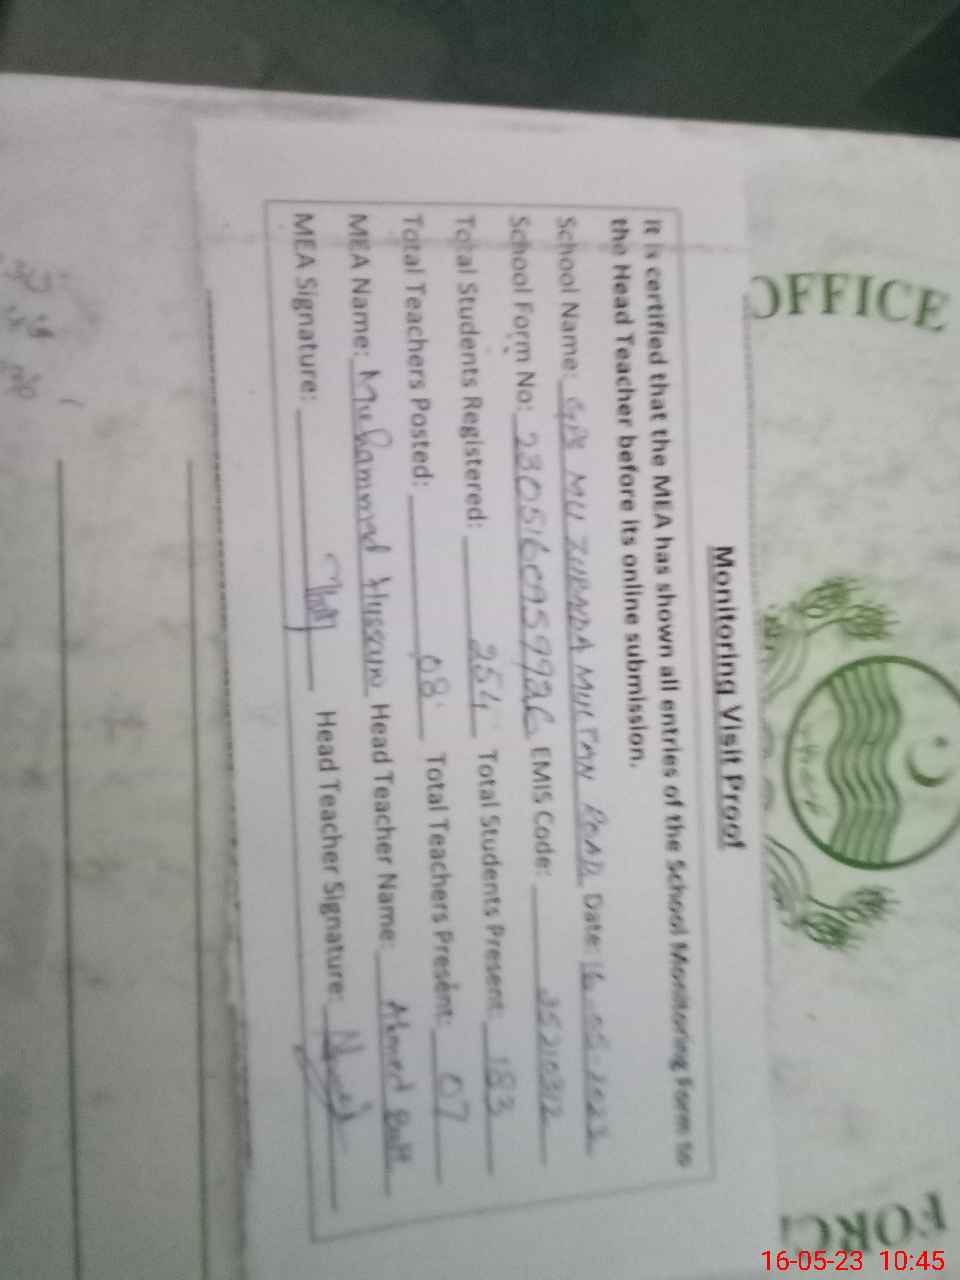 OFFICE
FORC
Monitoring Visit Proof
It is certified that the MEA has shown all entries of the School Monitoring Form to
the Head Teacher before its online submission.
School Name: GPS MU ZUBADA MULTAN ROAD Date: 16-05-2023
School Form No: EMIS Code: 35210312
Total Students Registered: 254 Total Students Present: 183
Total Teachers Posted: 08 Total Teachers Present: 07
MEA Name: Muhammad Hussain Head Teacher Name: Ahmed Butt
MEA Signature: Head Teacher Signature:
16-05-23 10:45